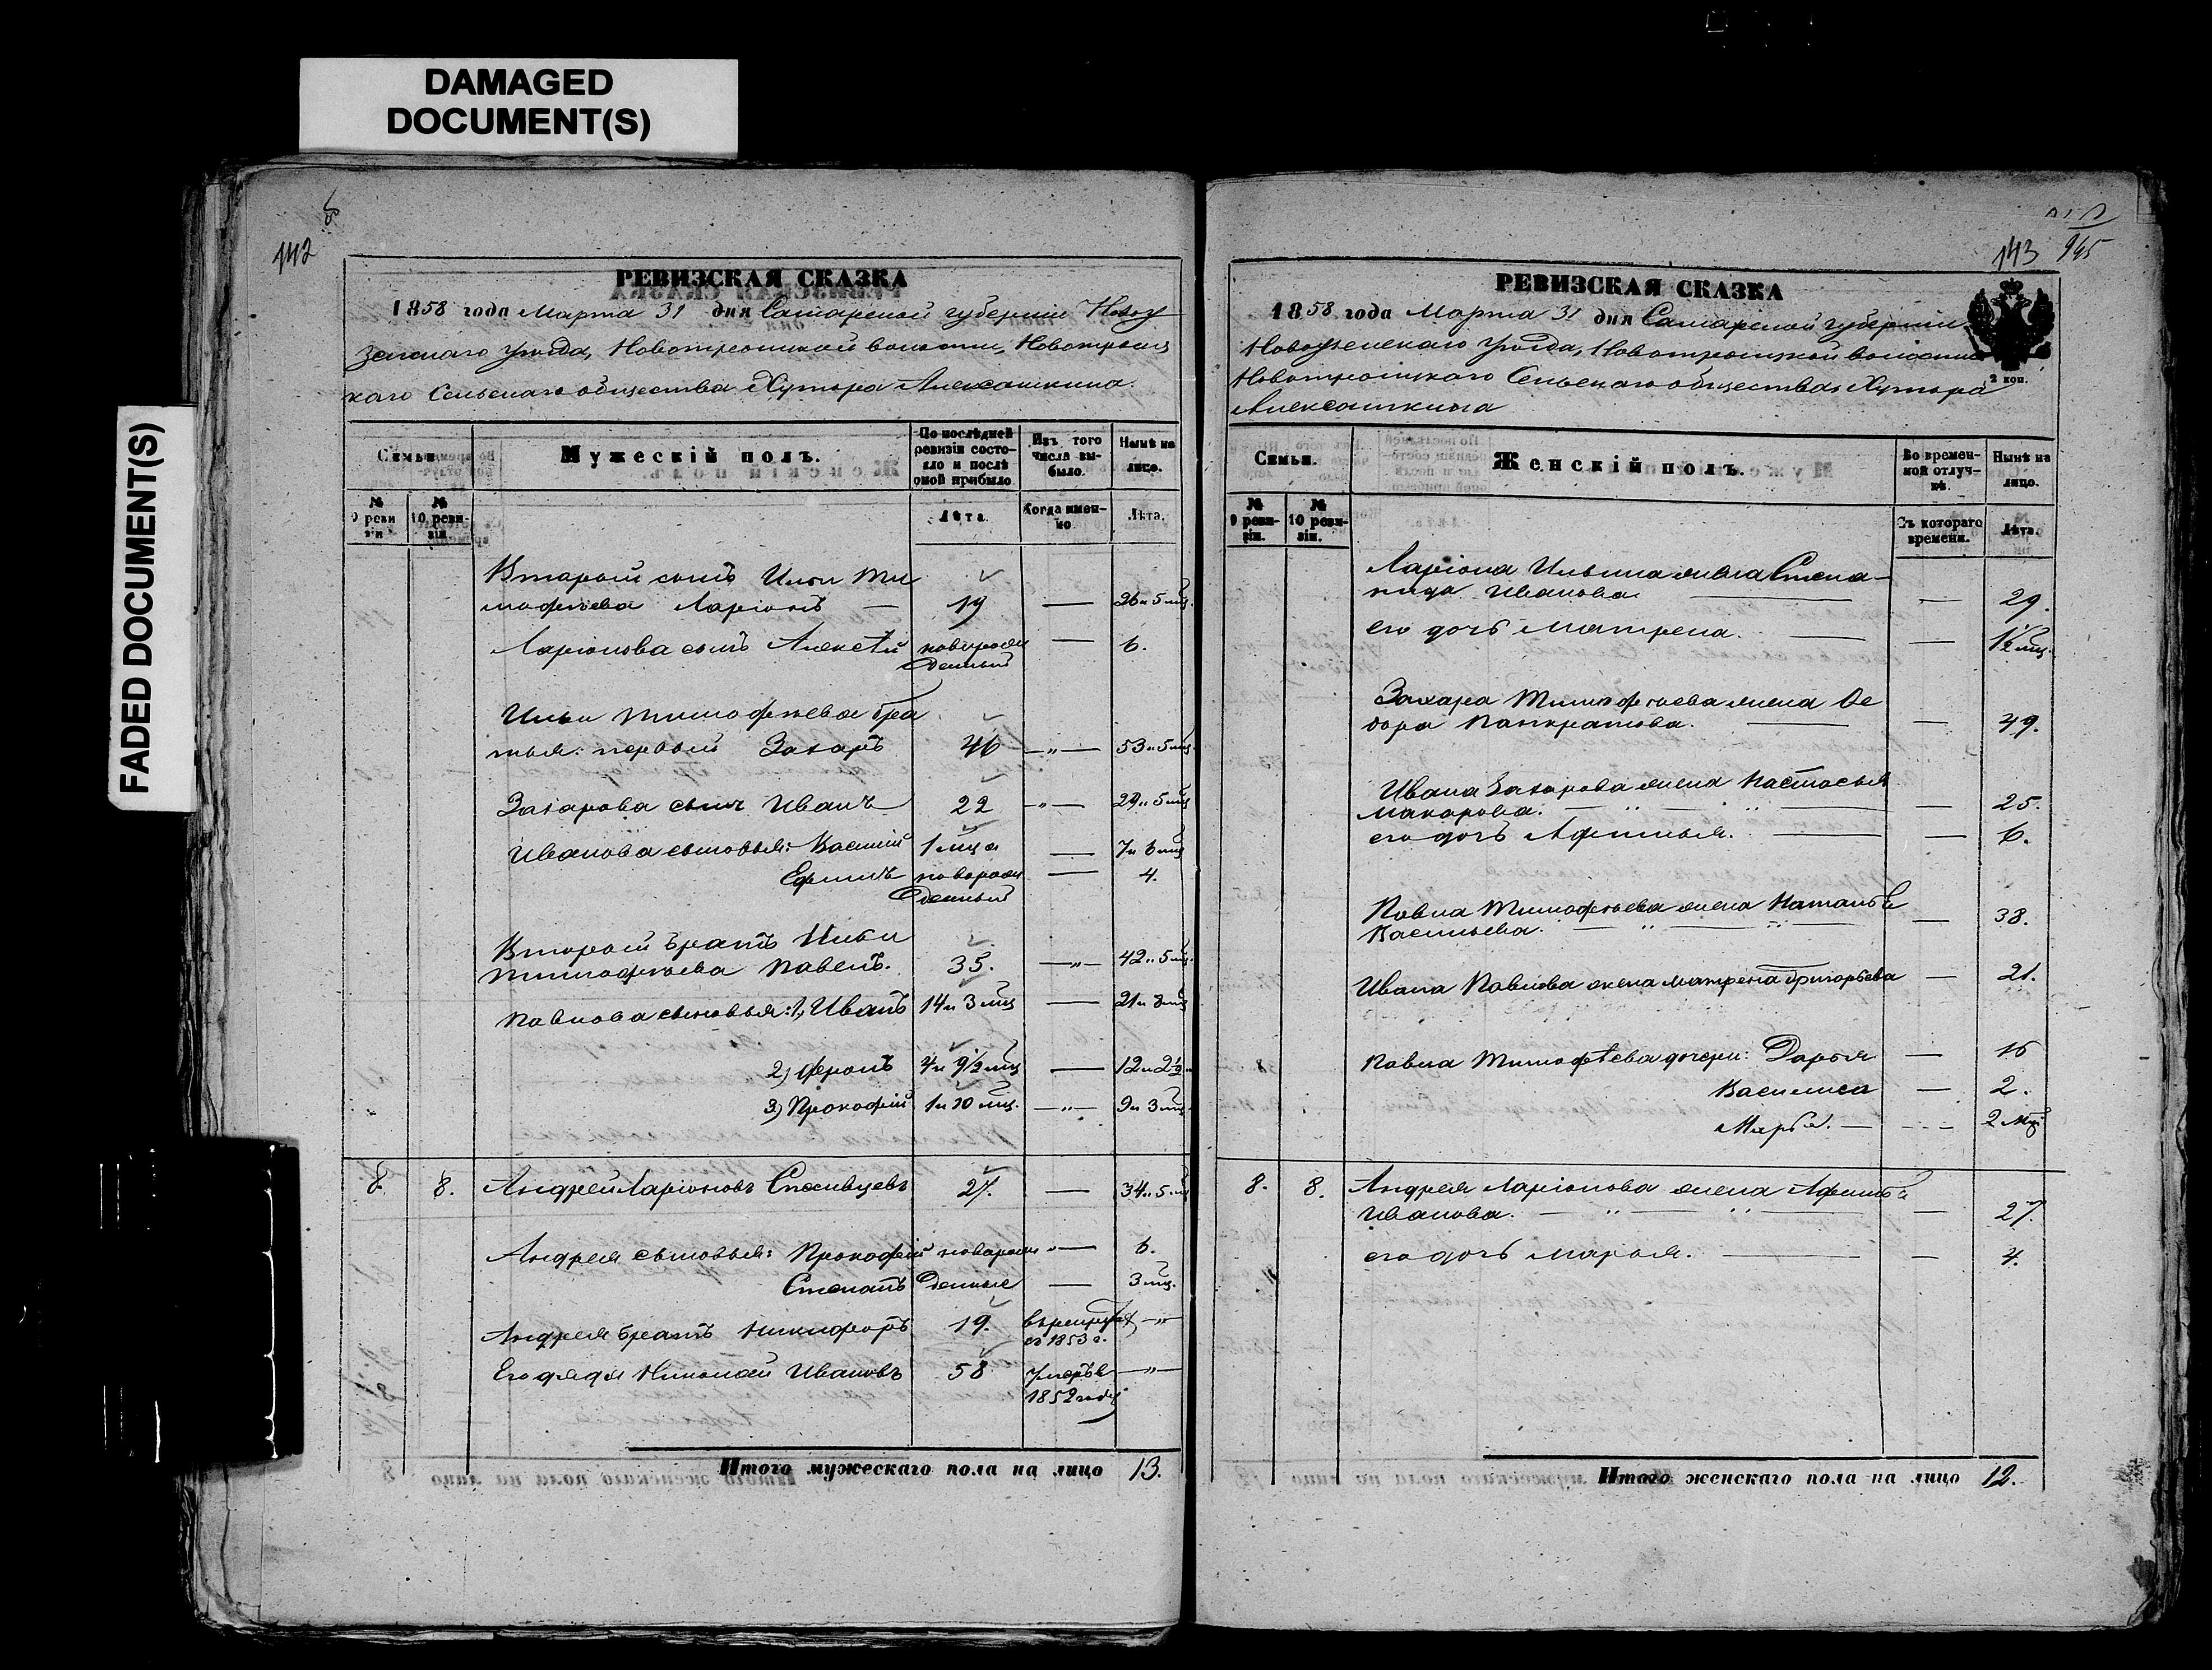 DAMAGED
DOCUMENT(S)
FADED DOCUMENT(S)
142
РЕВИЗСКАЯ СКАЗКА
1858 года Марта 31 дня Самарской губерніи Новоу
зенскаго уѣзда, Новотроицкой волости, Новотроиц
каго Сельскаго общества Хутора Алексашкина.
Семьи.
Мужескій полъ.
По послѣдней ревизіи состояло и послѣ оной прибыло.
Изъ того числа выбыло.
Нынѣ на лицо.
№ 9 ревизіи
№ 10 ревизіи.
Лѣта.
Когда именно.
Лѣта.
Вторый сынъ Ильи Ти
мофѣева Ларіонъ — 19 — 26 и 5 мц.
Ларіонова сынъ Алексѣй новорож — 6.
денный
Ильи Тимофѣева бра
тья: первый Захаръ 46 —„— 53 и 5 мц.
Захарова сынъ Иванъ 22 —„— 29 и 5 мц
Иванова сыновья: Василій 1 мца — 7 и 6 мц
Ефимъ новорож — 4.
денный
Второй братъ Ильи
Тимофѣева Павелъ. 35. —„— 42 и 5 мц.
Павлова сыновья: 1, Иванъ 14 и 3 мц — 21 и 8 мц
2) Феропъ 4 и 9½ мц — 12 и 2½
3) Прокофій 1 и 10 мц. —„— 9 и 3 мц.
8. 8. Андрей Ларіоновъ Спивцевъ 27. — 34 и 5 мц
Андрея сыновья: Прокофій новорож „— 6.
Степанъ денные — 3 мц.
Андрея братъ Никифоръ 19. въ рекрутах —„—
съ 1853 г.
Его дядя Николай Ивановъ 58 умеръ в —„—
1852 году
Итого мужескаго пола на лицо 13.
143
945
РЕВИЗСКАЯ СКАЗКА
1858 года Марта 31 дня Самарской губерніи
Новоузенскаго уѣзда, Новотроицкой волости
Новотроицкаго Сельскаго общества Хутора
Алексашкина
2 коп.
Семьи.
Женскій полъ.
Во временной отлучкѣ.
Нынѣ на лицо.
№ 9 ревизіи.
№ 10 ревизіи.
Съ котораго времени.
Лѣта.
Ларіона Ильина жена Степа-
нида Иванова — — 29.
его дочь Матрена. — — 1½ мц.
Захара Тимофѣева жена Ѳе
дора Панкратова. — — 49.
Ивана Захарова жена Настасья
Макарова. — „ — „ — — 25.
его дочь Афимья. — — 6.
Павла Тимофѣева жена Наталья
Васильева. — „ — „ — — 38.
Ивана Павлова жена Матрена Григорьева — 21.
Павла Тимофѣева дочери: Дарья — 16
Василиса — 2.
Марья. — --- 2 мц
8. 8. Андрея Ларіонова жена Афимья
Иванова. — „ — „ — — 27.
его дочь Марья. — — 4.
Итого женскаго пола на лицо 12.